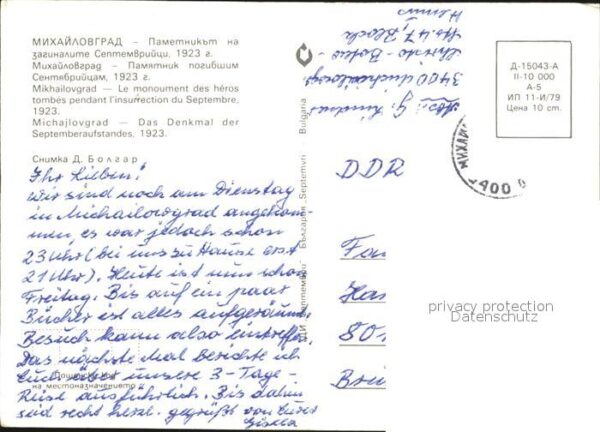 МИХАЙЛОВГРАД – Паметникът на
загиналите Септемврийци, 1923 г.
Михайловград – Памятник погибшим
Сентябрийцам, 1923 г.
Mikhailovgrad – Le monument des héros
tombés pendant l'insurrection du Septembre,
1923.
Michajlovgrad – Das Denkmal der
Septemberaufstandes, 1923.
Снимка Д. Болгар
Ihr Lieben!
Wir sind noch am Dienstag
in Michailowgrad angekom-
men, es war jedoch schon
23 Uhr (bei uns zu Hause erst
21 Uhr). Heute ist nun schon
Freitag. Bis auf ein paar
Bücher ist alles aufgeräumt.
Besuch kann also eintreffen.
Das nächste Mal berichte ich
Euch über unsere 3-Tage-
на местоназначението
Reise ausführlich. Bis dahin
seid recht herzl. gegrüßt von Eurer
Gisela
ДИ Септември България Septemvri Bulgaria
Abs. G.
3400 Michailowgrad
Christo-Botew-
No 47, Block
Д-15043-А
II-10 000
А-5
ИП 11-И/79
Цена 10 ст.
МИХАЙ
3400
DDR
Fa
Ha
80
privacy protection
Datenschutz